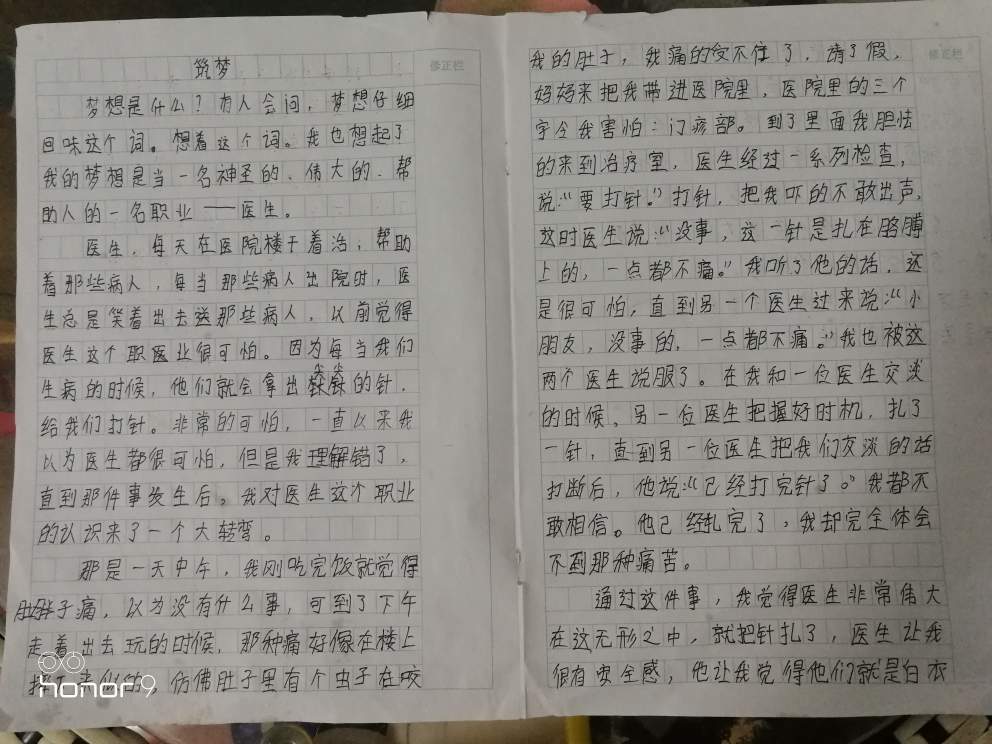 筑梦
修正栏
梦想是什么？有人会问，梦想仔细
回味这个词。想着这个词。我也想起了
我的梦想是当一名神圣的、伟大的、帮
助人的一名职业——医生。
医生，每天在医院楼干着治，帮助
着那些病人，每当那些病人出院时，医
生总是笑着出去送那些病人，以前觉得
医生这个职医业很可怕。因为每当我们
生病的时候，他们就会拿出尖尖的针，
给我们打针。非常的可怕，一直以来我
以为医生都很可怕，但是我理解错了，
直到那件事发生后。我对医生这个职业
的认识来了一个大转弯。
那是一天中午，我刚吃完饭就觉得
肚子痛，以为没有什么事，可到了下午
走着出去玩的时候，那种痛好像在楼上
似的，仿佛肚子里有个虫子在咬
honor9
修正栏
我的肚子，我痛的受不住了，请了假，
妈妈来把我带进医院里，医院里的三个
字令我害怕：门疹部。到了里面我胆怯
的来到治疗室，医生经过一系列检查，
说：“要打针。”打针，把我吓的不敢出声，
这时医生说：“没事，这一针是扎在胳膊
上的，一点都不痛。”我听了他的话，还
是很可怕，直到另一个医生过来说：“小
朋友，没事的，一点都不痛。”我也被这
两个医生说服了。在我和一位医生交谈
的时候、另一位医生把握好时机，扎了
一针，直到另一位医生把我们交谈的话
打断后，他说：“已经打完针了。”我都不
敢相信。他已经扎完了，我却完全体会
不到那种痛苦。
通过这件事，我觉得医生非常伟大
在这无形之中，就把针扎了，医生让我
很有安全感，他让我觉得他们就是白衣